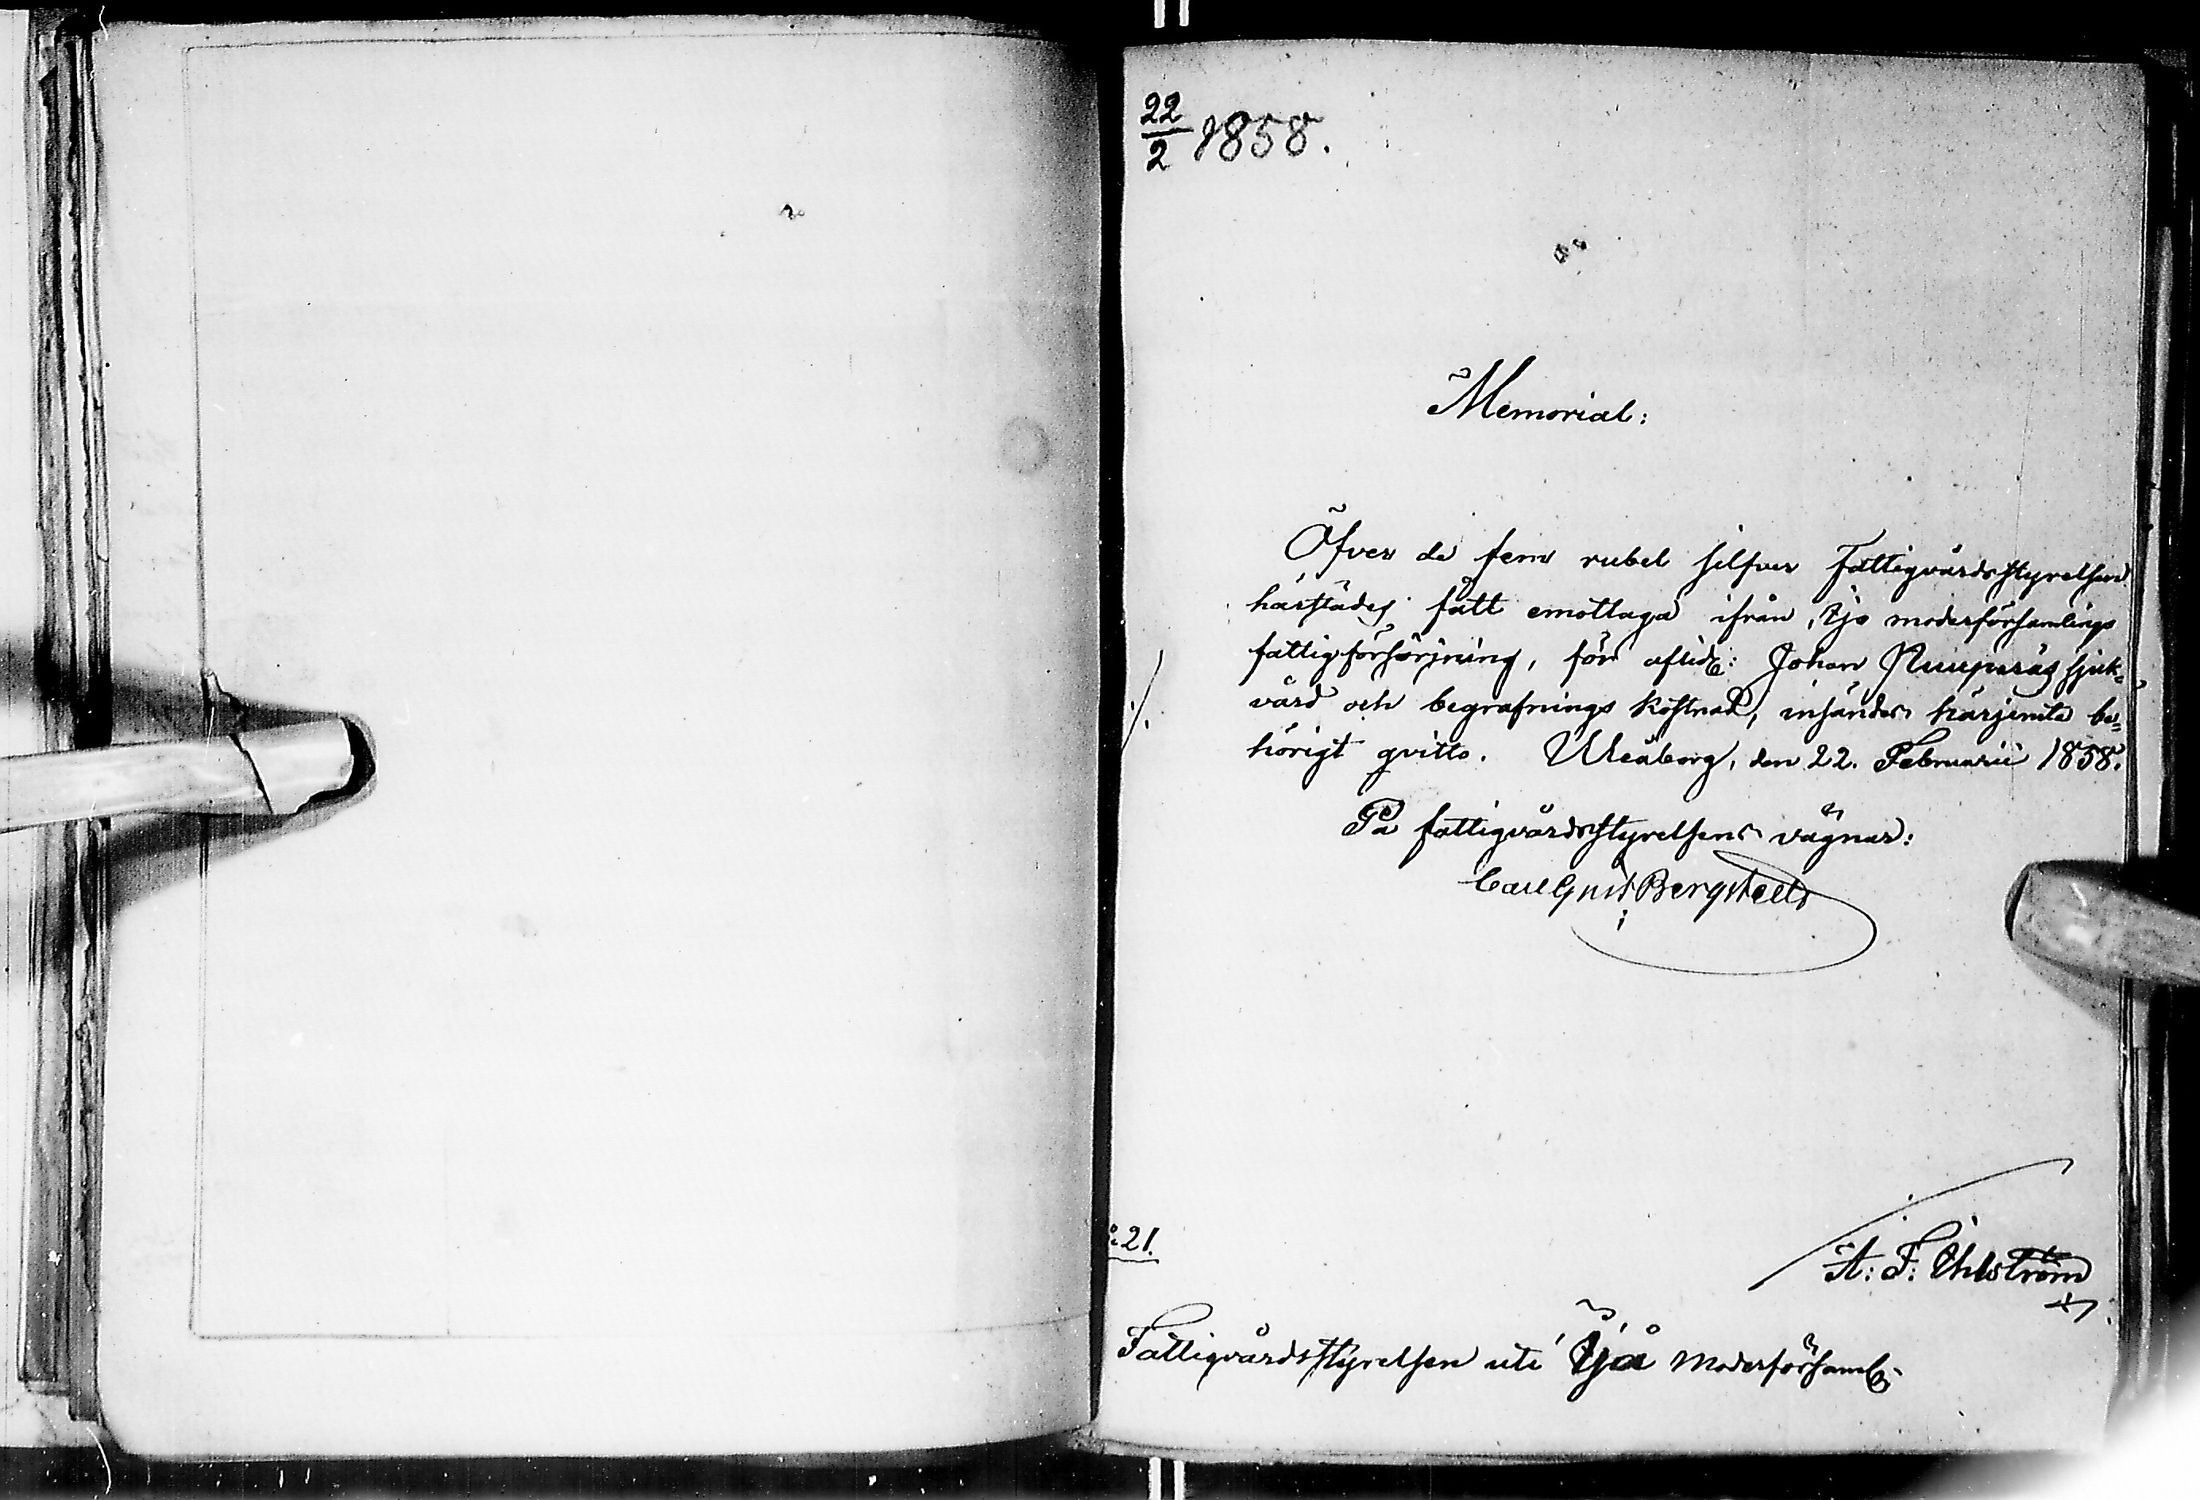 22/2 1858.
Memorial:
Öfver de fem rubel silfver Fattigvårdsstyrelsen
härstädes fått emottaga ifrån Ijo moderförsamlings
fattigförsörjning, för aflidne: Johan Ruuperäs sjuk=
vård och begrafnings kostnad, insändes härjemte be=
hörigt qvitto. Uleåborg, den 22. Februarii 1858.
På fattigvårdsstyrelsens vägnar:
Carl Gust Bergstedt
№ 21.
A: F: Öhlström
Fattigvårdsstyrelsen uti Ijå moderförsaml.